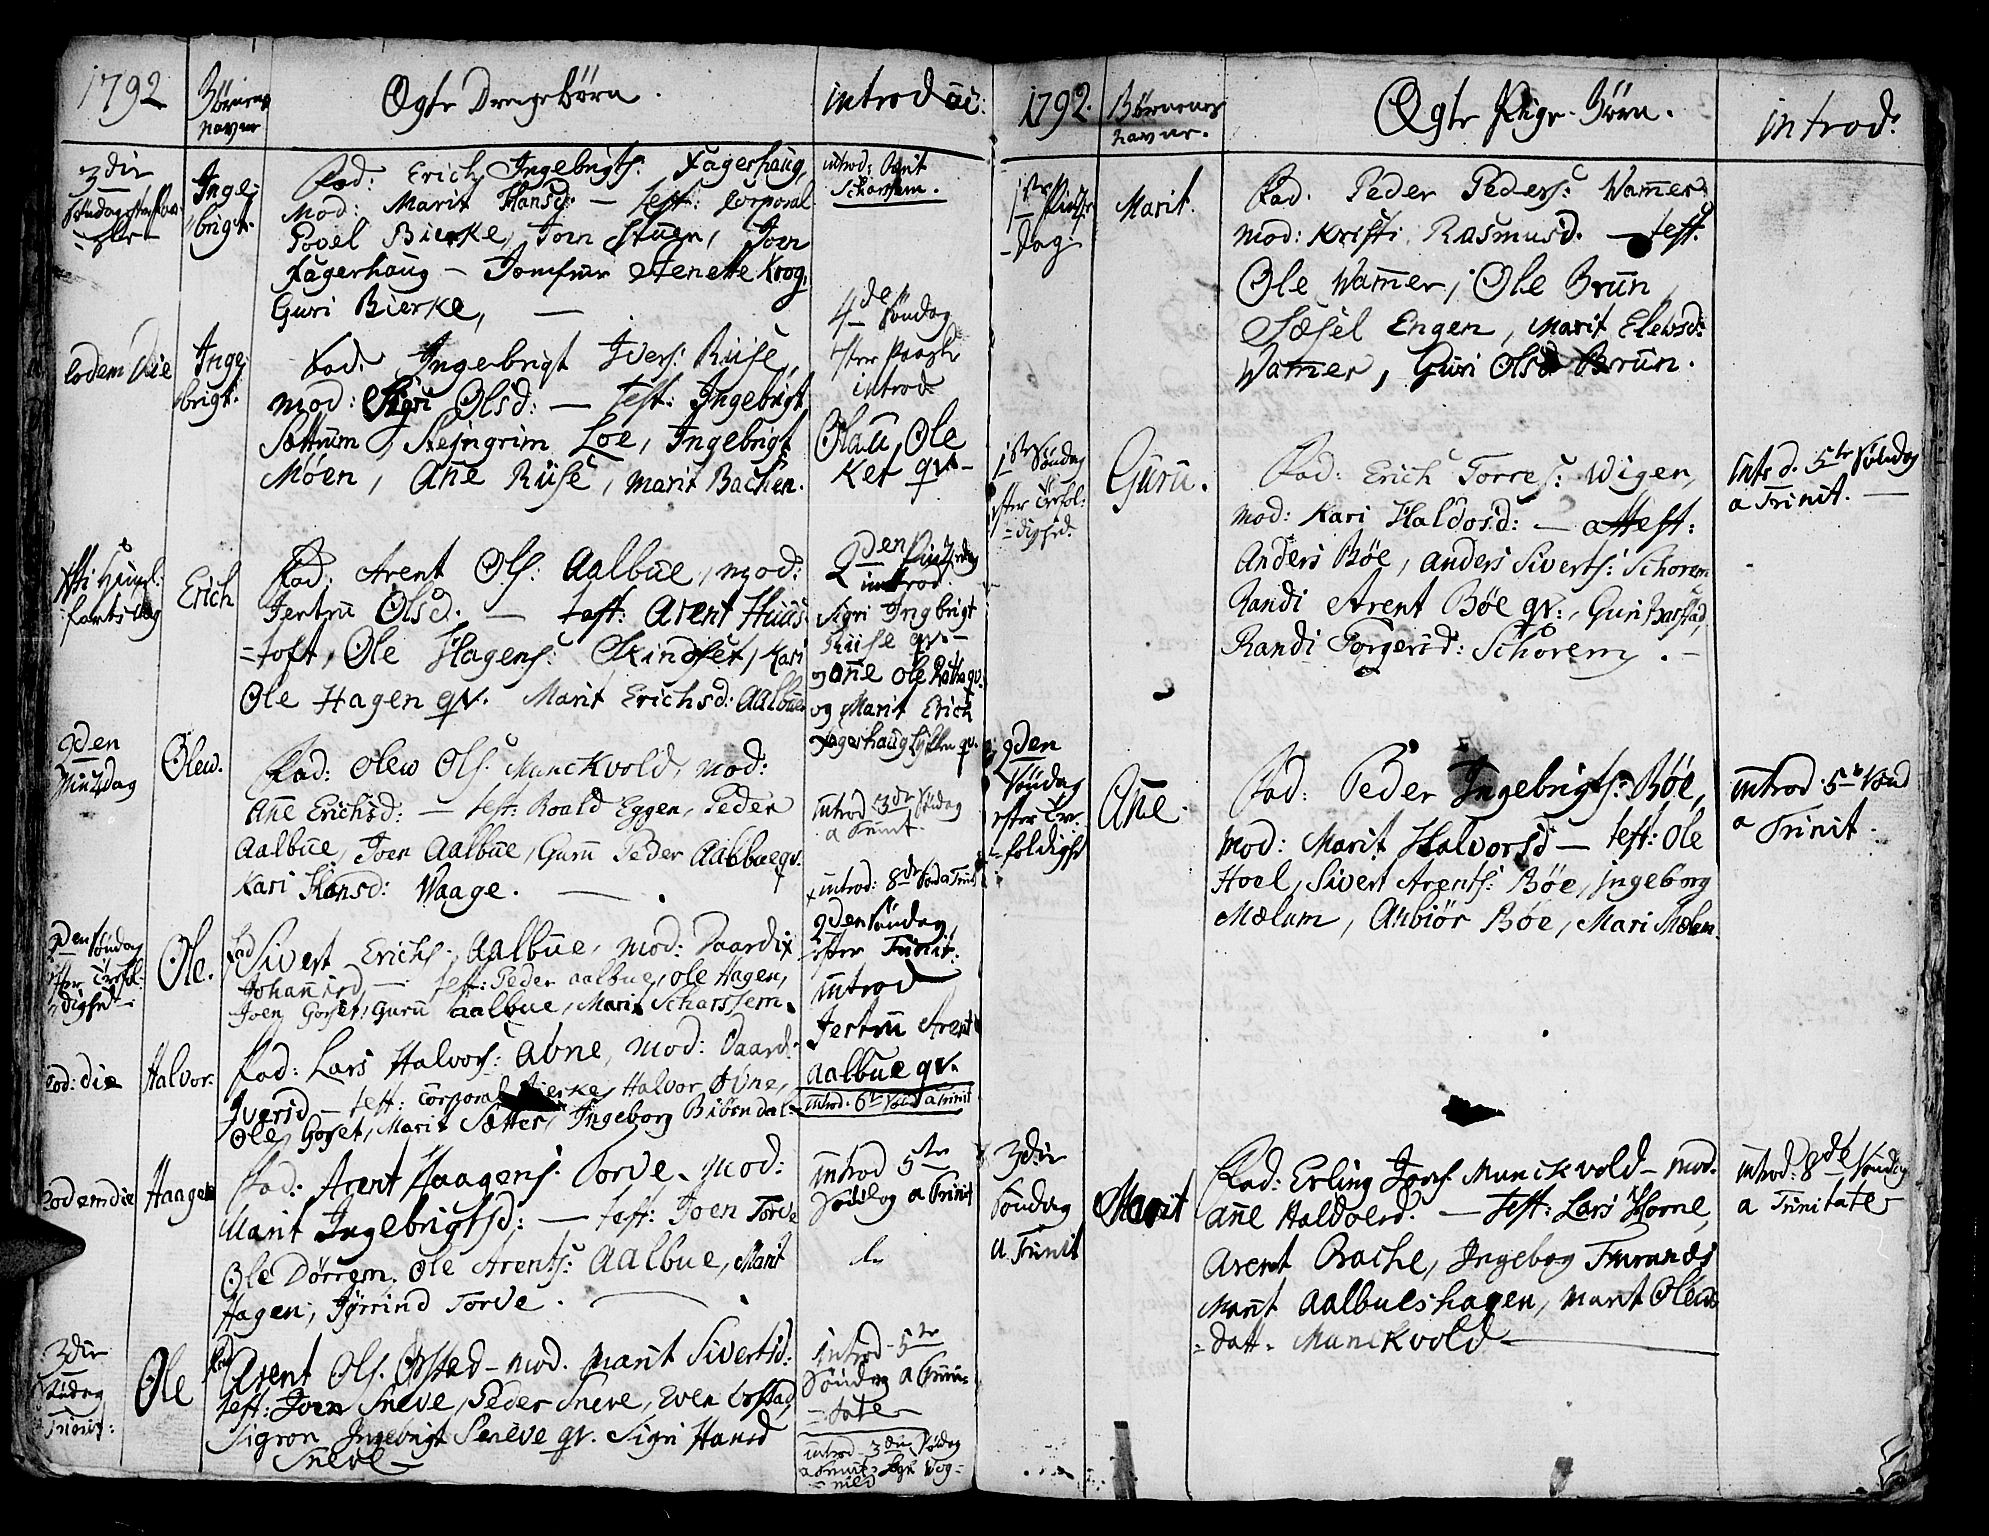 1792
Børnenes
navne
Ægte Drengebörn.
introd
3die
Søndag efter Paa-
Inge-
brigt.
Fad: Erich Ingebrigts: Fagerhaug,
Mod: Marit Hansd: — test: Corporal
Povel Bierke, Joen Stuen, Joen
Fagerhaug — Jomfrue Stenette Krog,
Guri Bierke, —
introd: Marit
Scharssem.
eodem Die
Inge-
brigt.
Fad: Ingebrigt Ivers: Riise,
mod: Sigri Olsd: — test: Ingebrigt
Sættrum, Stejngrim Loe, Ingebrigt
Möen, Ane Riise, Marit Bachen.
4de Söndag
efter Paaske
introd.
Olau, Ole
qv.
Christi Himmel-
farts dag
Erich
Fad: Arent Ols. Aalbue, mod:
Jertru Olsd. — test: Arent Huus-
=toft, Ole Hagens: Skindset, Kari
Ole Hagen qv. Marit Erichsd: Aalbue
2den Pintzedag
introd
Sigri Ingbrigt
Riise qv.
og Ane Ole qv.
og Marit Erich
Fagerhaug qv.
2den
Pintzdag
Olew.
Fad: Olew Ols. Munckvold, mod:
Ane Erichsd: — test: Roald Eggen, Peder
Aalbue, Joen Aalbue, Guru Peder Aalbue qv.
Kari Hansd: Vaage. —
introd 3de Söndag
a Trinit.
introd: 8de Sönd a Trinit
2den Söndag
efter Trefol-
=dighed
Ole.
Fad Sivert Erichs. Aalbue, mod: Daardi
Johannisd, — test: Peder Aalbue, Ole Hagen,
Joen Gorset, Guru Aalbue, Marit Scharssem.
2den Söndag
efter Trinit:
introd
Jertru Arent
Aalbue qv.
eod: die
Halvor.
Fad: Lars Halvors: Aune, mod: Daardi
Iversd — test: Corporal Bierke, Halvor Aune,
Ole Gorset, Marit Sætter, Ingeborg Biörndal.
introd. 6te Sönd a Trinit
eodem die
Haagen
Fad: Arent Haagens. Torve. mod:
Marit Ingebrigtsd: — test: Joen Torve
Ole Dörrem. Ole Arents: Aalbue, Marit
Hagen, Jörrind Torve. —
introd 5te
Söndag a Trinit
3die
Söndag
Trinit:
Ole
Fad Arent Ols. Örstad — mod. Marit Sivertsd:
test: Joen Sneve, Peder Sneve, Örstad,
Sigron Ingebrigt Sneve qv. Sigri Hansd
Sneve —
introd 5te
Söndag a Trini-
=tate
introd 3die Söndag
a Trinit
1792.
Børnenes
navne.
Ægte Pige-Börn.
introd:
1ste Pintze-
-dag
Marit.
Fad. Peder Peders: Wamer.
mod: Kristi Rasmusd. — test.
Ole Wamer, Ole Brun
Sæsel Engen, Marit Elewsd:
Wamer, Guri Olsd Brun.
1ste Söndag
efter Trefol-
=dighed.
Guru.
Fad: Erich Torres: Wigen,
mod: Kari Haldosd: — test:
Anders Böe, Anders Siverts: Schorem
Randi Arent Böe qv., Guri Barstad,
Randi Torgersd: Schorem. —
Introd. 5te Söndag
a Trinit. —
2den
Söndag
efter Tre-
=foldighed
Ane.
Fad: Peder Ingebrigts: Böe,
mod: Marit Halvorsd — test: Ole
Hoel, Sivert Arents: Böe, Ingeborg
Mælum, Anbiör Böe, Mari Mælum.
introd. 5te Sönd
a Trinit.
3die
Söndag
a Trinit
Marit
Fad: Erling Joens. Munckvold — mod.
Ane Haldoersd. — test: Lars Horne,
Arent Bache, Ingebog
Marit Aalbueshagen, Marit
=datt. Munckvold —
introd: 8de Söndag
a Trinitate